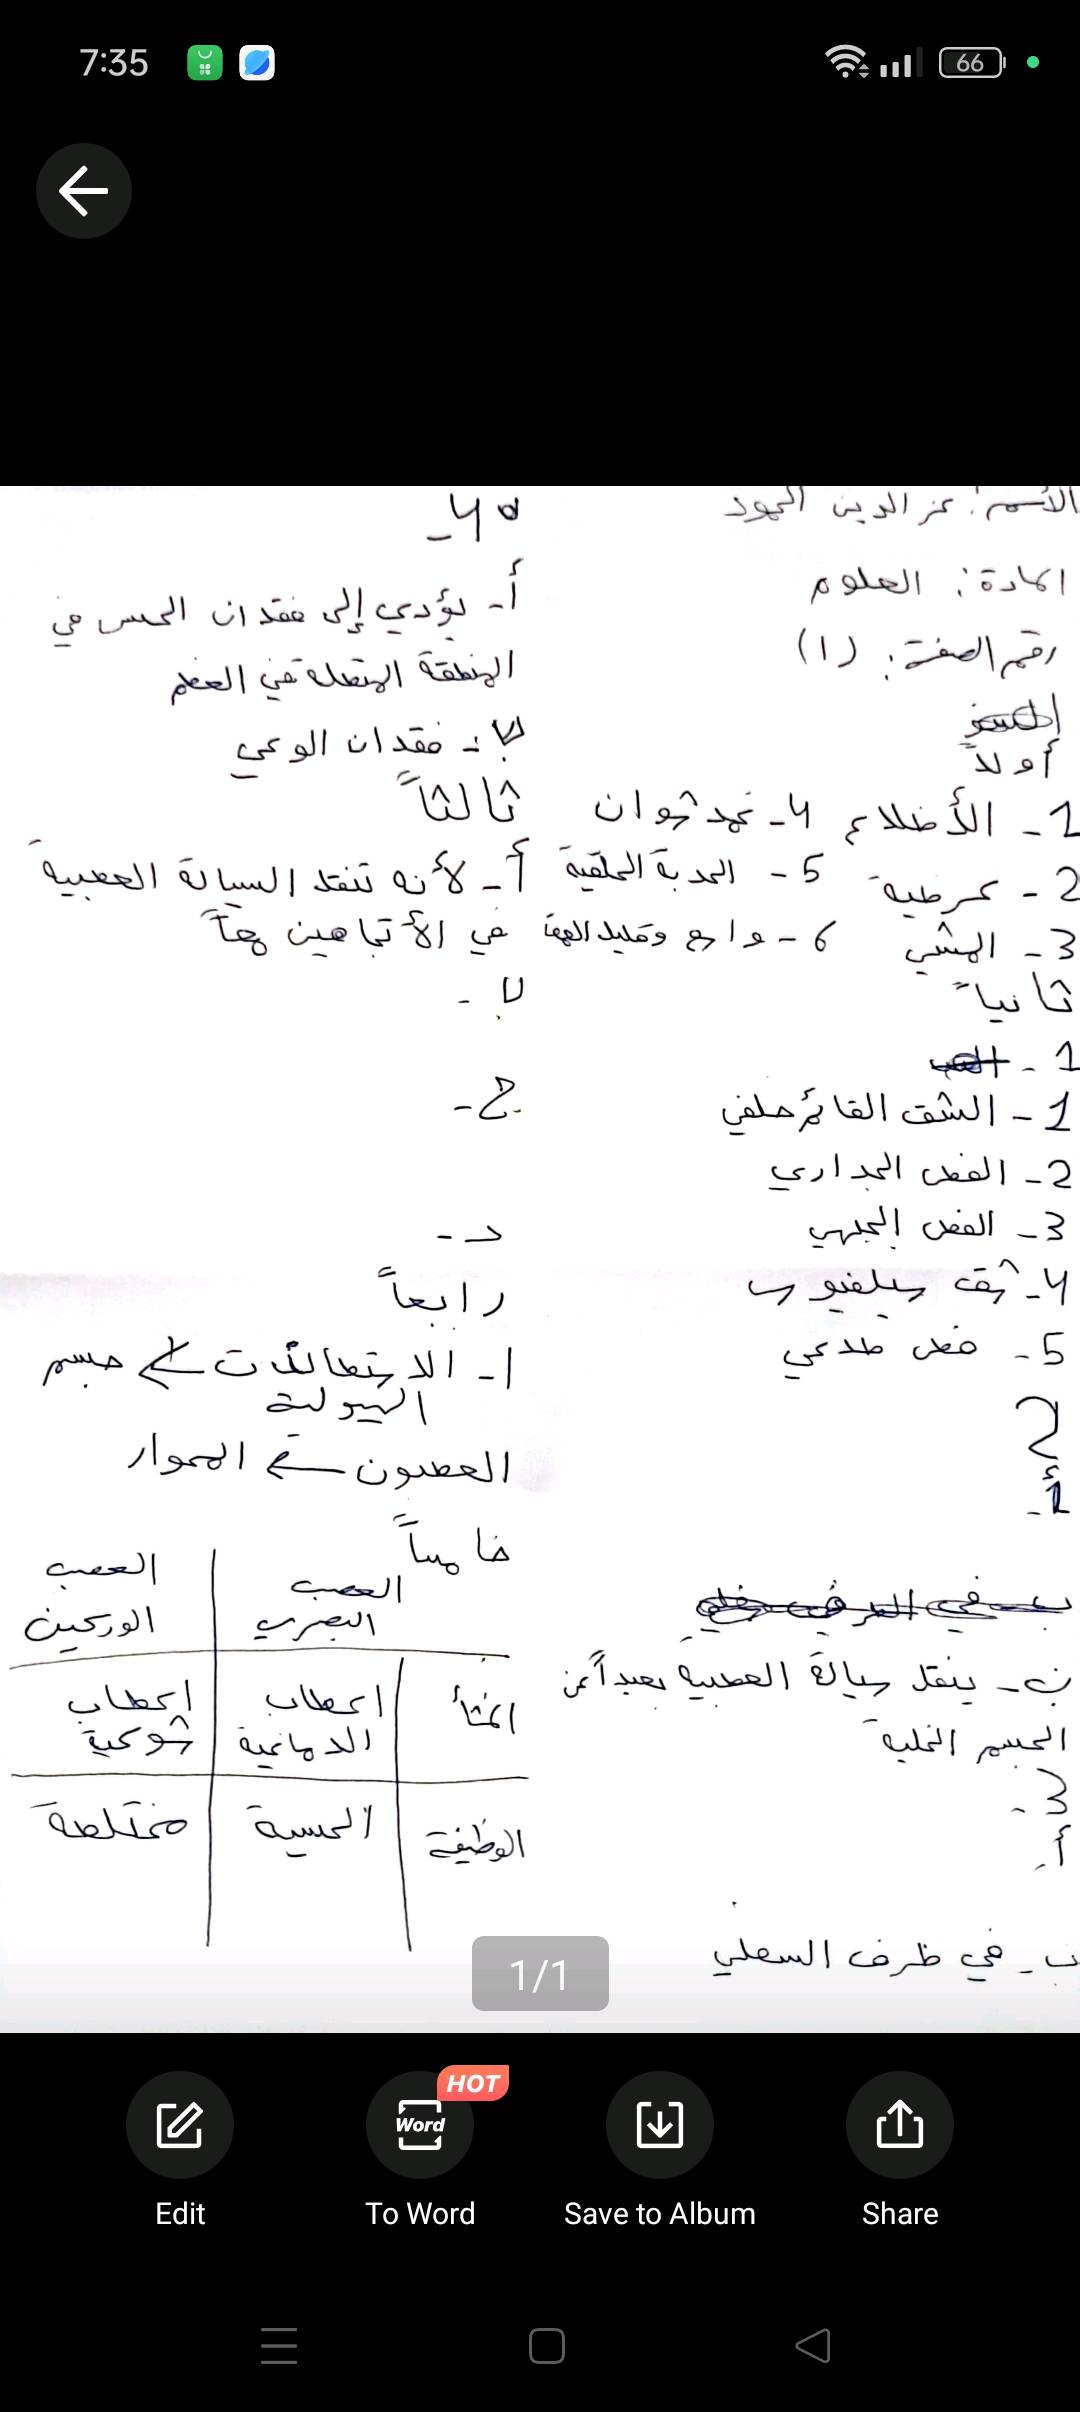 7:35
66
الأسم: عز الدين الحمود
المادة: العلوم
رقم الصفحة: (1)
أولاً
1- الأظلاع
2- عرضية
3- المشي
4- نمد شوان
5- الحدبة الحلقية
6- واسع وقليل العمق
ثانياً
1-
1- الشق القائم خلفي
2- الفص الجداري
3- الفص الجبهي
4- شق سيلفيوس
5- فص صدغي
2
أ-
ب- ينقل سيالة العصبية بعيداً عن
الجسم الخلية
3-
أ-
ب- في ظرف السفلي
4-
أ- يؤدي إلى فقدان الحس في
المنطقة المتصلة في العظم
ب- فقدان الوعي
ثالثاً
أ- لأنه تنقل السيالة العصبية
في الأتجاهين معاً
ب-
ج-
د-
رابعاً
1- الاستطالات جسم
العصبون المحوار
خامساً
العصب البصري
العصب الوركين
المنشأ
اعصاب الدماغية
اعصاب شوكية
الوظيفة
الحسية
مختلصة
1/1
HOT
Word
Edit
To Word
Save to Album
Share